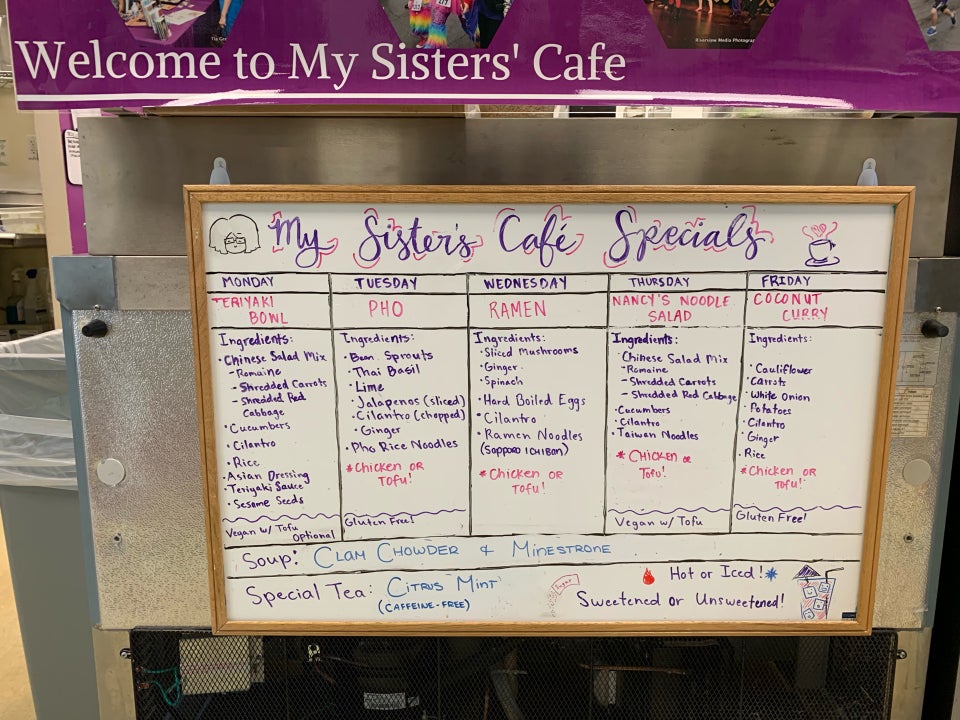 Riverview Media Photography
Welcome to My Sisters' Cafe
My Sister's Café Specials
MONDAY
TERIYAKI
BOWL
Ingredients:
• Chinese Salad Mix
- Romaine
- Shredded Carrots
- Shredded Red
Cabbage
• Cucumbers
• Cilantro
• Rice
• Asian Dressing
• Teriyaki Sauce
• Sesame Seeds
Vegan w/ Tofu
Optional
TUESDAY
PHO
Ingredients:
• Bean Sprouts
• Thai Basil
• Lime
• Jalapenos (sliced)
• Cilantro (chopped)
• Ginger
• Pho Rice Noodles
* Chicken or
Tofu!
Gluten Free!
WEDNESDAY
RAMEN
Ingredients:
• Sliced Mushrooms
• Ginger
• Spinach
• Hard Boiled Eggs
• Cilantro
• Ramen Noodles
(SAPPORO ICHIBAN)
* Chicken or
Tofu!
THURSDAY
NANCY'S NOODLE
SALAD
Ingredients:
Chinese Salad Mix
- Romaine
- Shredded Carrots
- Shredded Red Cabbage
• Cucumbers
• Cilantro
• Taiwan Noodles
* Chicken or
Tofu!
Vegan w/ Tofu
FRIDAY
COCONUT
CURRY
Ingredients:
• Cauliflower
• Carrots
• White Onion
• Potatoes
• Cilantro
• Ginger
• Rice
* Chicken or
Tofu!
Gluten Free!
Soup: CLAM CHOWDER & MINESTRONE
Special Tea: CITRUS MINT
(CAFFEINE-FREE)
Sugar
Hot or Iced!
Sweetened or Unsweetened!